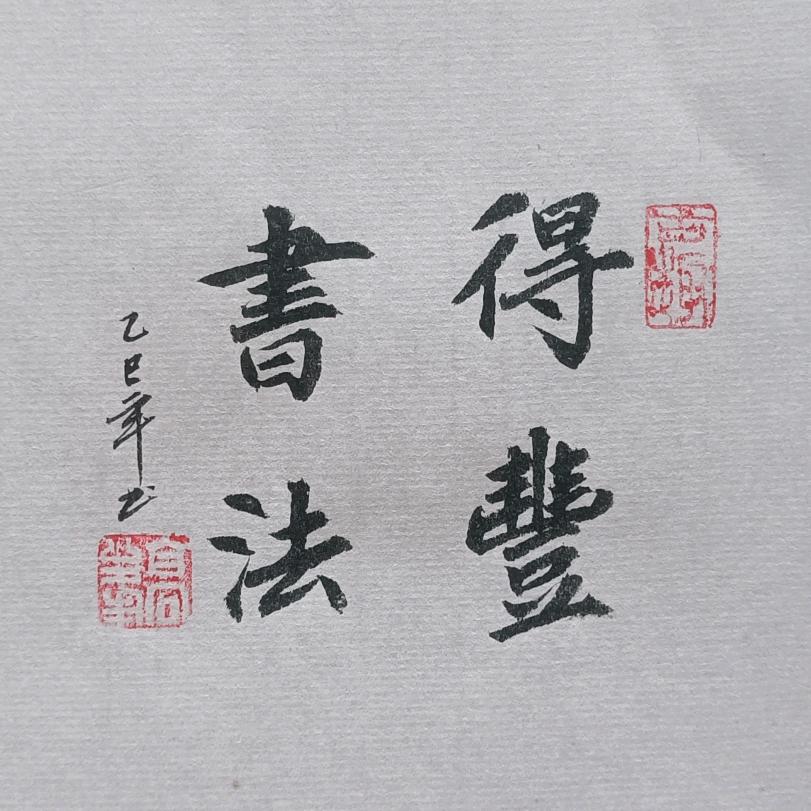 得豐
書法
乙巳年书